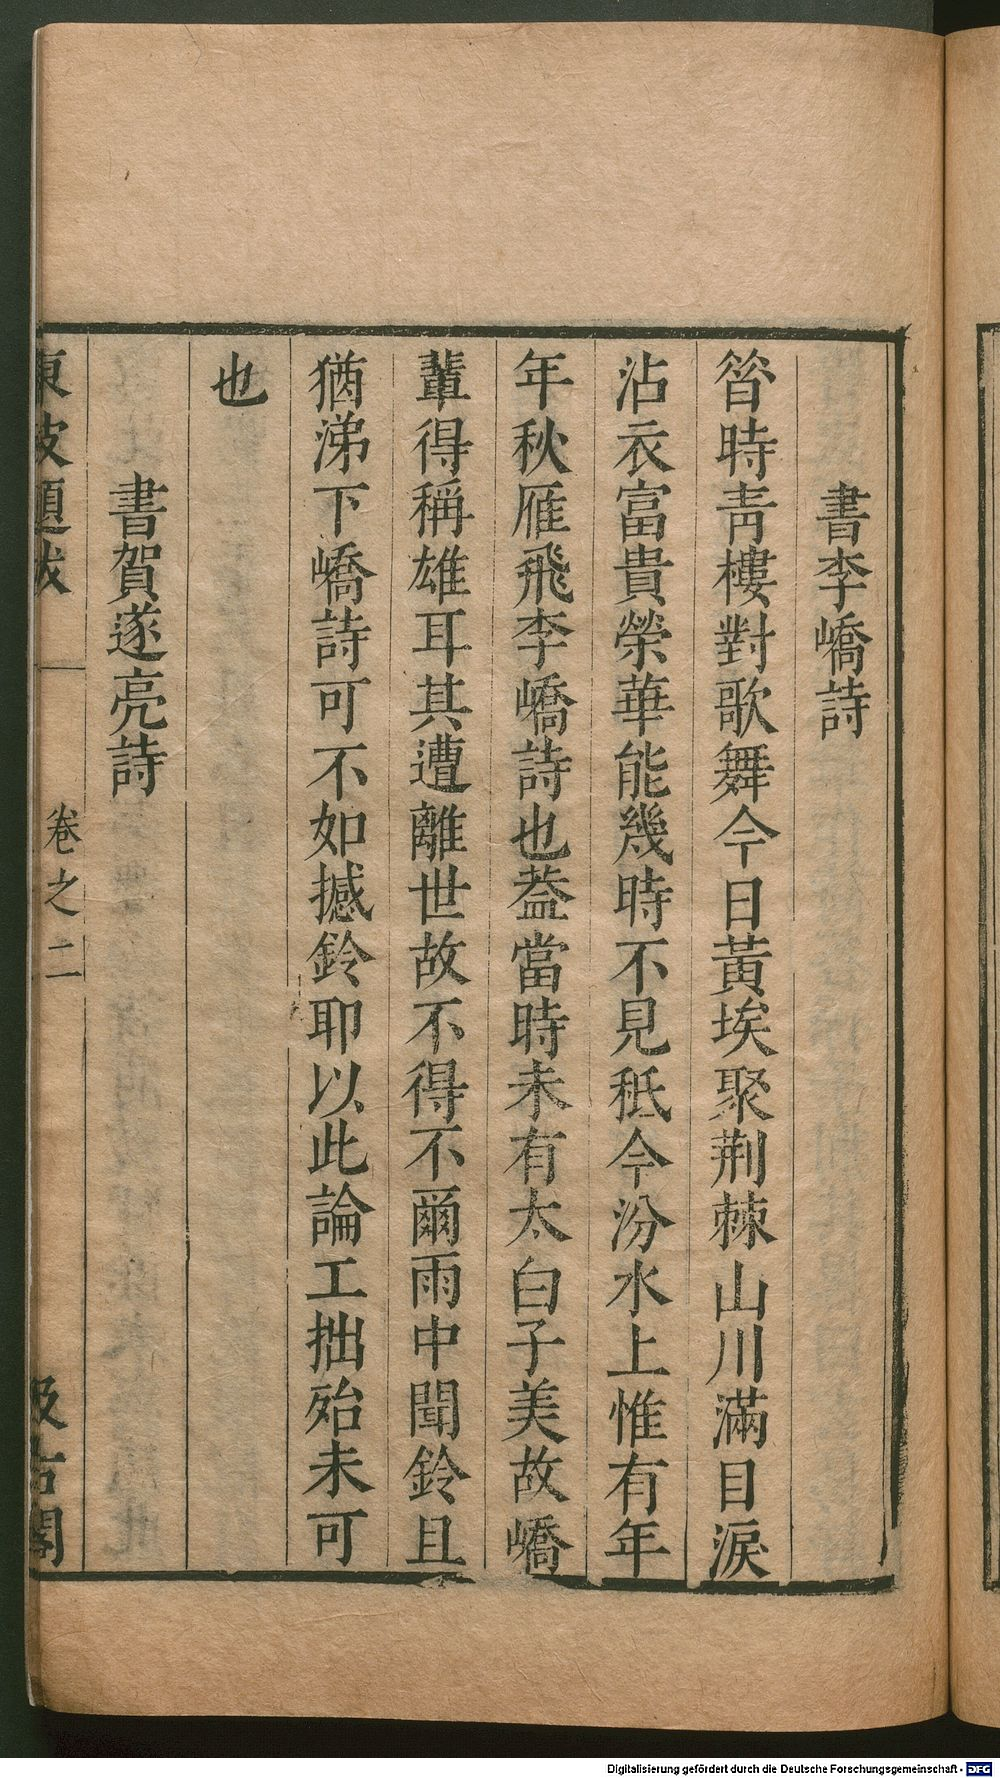 書李嶠詩
昝時靑樓對歌舞今日黃埃聚荆棘山川滿目淚
沾衣富貴榮華能幾時不見秖今汾水上惟有年
年秋雁飛李嶠詩也葢當時未有太白子美故嶠
輩得稱雄耳其遭離世故不得不爾雨中聞鈴且
猶涕下嶠詩可不如撼鈴耶以此論工拙殆未可
也
書賀遂亮詩
東坡題跋
卷之二
汲古閣
Digitalisierung gefördert durch die Deutsche Forschungsgemeinschaft - DFG